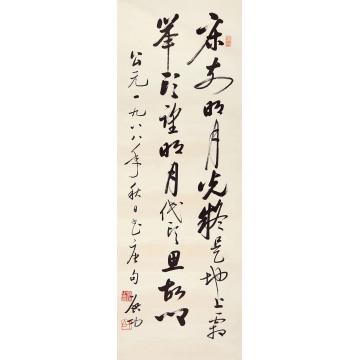 床前明月光疑是地上霜
舉頭望明月低頭思故鄉
公元一九八八年秋日書唐句 启功